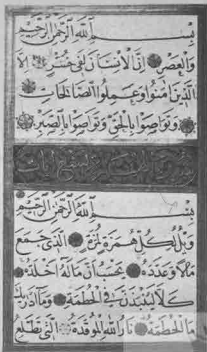 بِسْمِ اللهِ الرَّحْمٰنِ الرَّحِيمِ
وَالْعَصْرِ اِنَّ الْاِنْسَانَ لَفِى خُسْرٍ اِلَّا
الَّذِينَ اٰمَنُوا وَعَمِلُوا الصَّالِحَاتِ
وَتَوَاصَوْا بِالْحَقِّ وَتَوَاصَوْا بِالصَّبْرِ
بِسْمِ اللهِ الرَّحْمٰنِ الرَّحِيمِ
وَيْلٌ لِكُلِّ هُمَزَةٍ لُمَزَةٍ اَلَّذِى جَمَعَ
مَالًا وَعَدَّدَهُ يَحْسَبُ اَنَّ مَالَهُ اَخْلَدَهُ
كَلَّا لَيُنْبَذَنَّ فِى الْحُطَمَةِ وَمَا اَدْرٰيكَ
مَا الْحُطَمَةُ نَارُ اللهِ الْمُوقَدَةُ الَّتِى تَطَّلِعُ